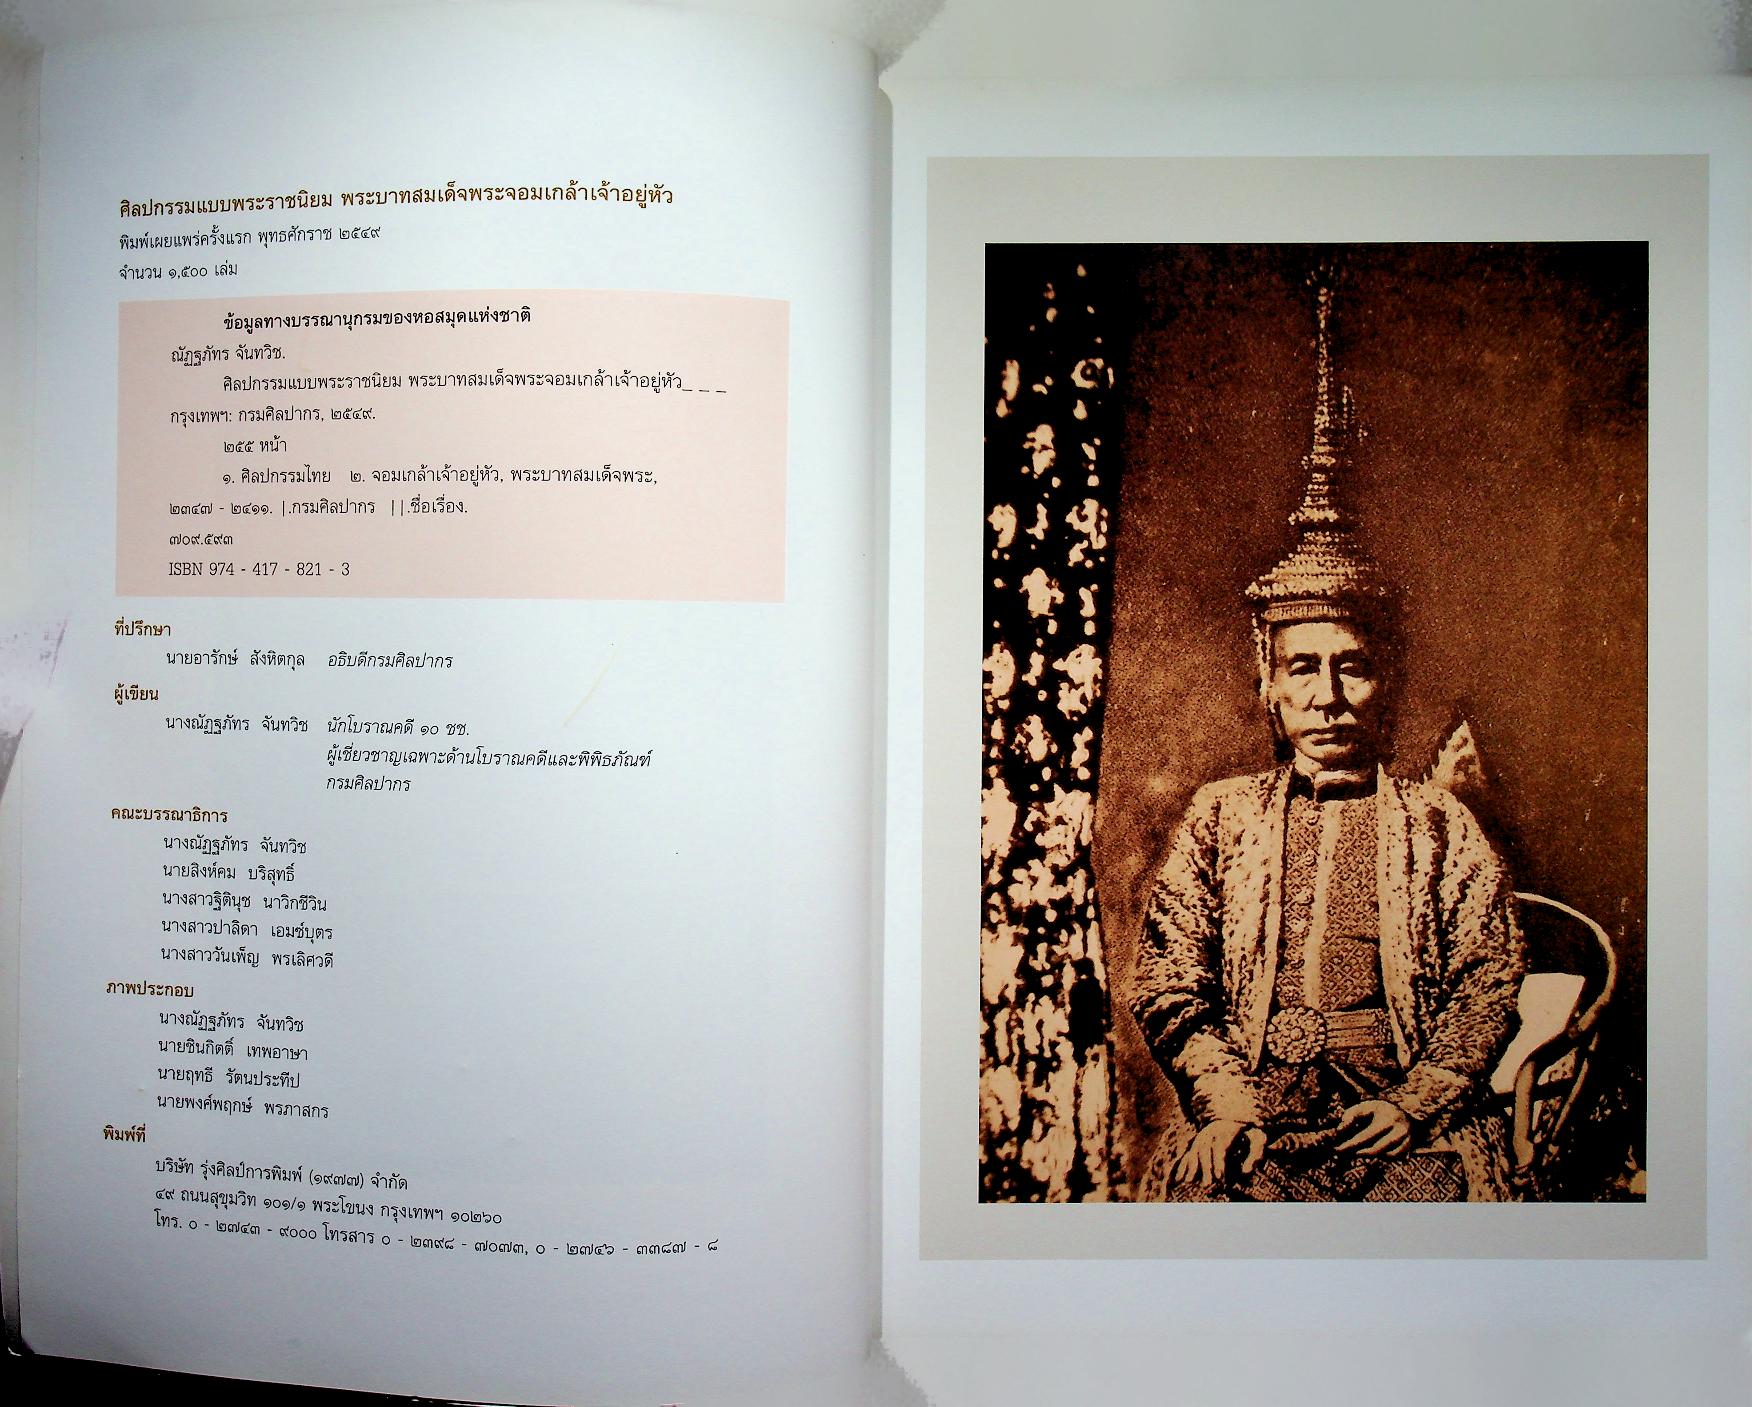 ศิลปกรรมแบบพระราชนิยม พระบาทสมเด็จพระจอมเกล้าเจ้าอยู่หัว
พิมพ์เผยแพร่ครั้งแรก พุทธศักราช ๒๕๔๙
จำนวน ๑,๕๐๐ เล่ม
ข้อมูลทางบรรณานุกรมของหอสมุดแห่งชาติ
ณัฏฐภัทร จันทวิช.
ศิลปกรรมแบบพระราชนิยม พระบาทสมเด็จพระจอมเกล้าเจ้าอยู่หัว_ _ _
กรุงเทพฯ: กรมศิลปากร, ๒๕๔๙.
๒๕๕ หน้า
๑. ศิลปกรรมไทย ๒. จอมเกล้าเจ้าอยู่หัว, พระบาทสมเด็จพระ,
๒๓๔๗ - ๒๔๑๑. |.กรมศิลปากร ||.ชื่อเรื่อง.
๗๐๙.๕๙๓
ISBN 974 - 417 - 821 - 3
ที่ปรึกษา
นายอารักษ์ สังหิตกุล อธิบดีกรมศิลปากร
ผู้เขียน
นางณัฏฐภัทร จันทวิช นักโบราณคดี ๑๐ ชช.
ผู้เชี่ยวชาญเฉพาะด้านโบราณคดีและพิพิธภัณฑ์
กรมศิลปากร
คณะบรรณาธิการ
นางณัฏฐภัทร จันทวิช
นายสิงห์คม บริสุทธิ์
นางสาวฐิตินุช นาวิกชีวิน
นางสาวปาลิดา เอมซ์บุตร
นางสาววันเพ็ญ พรเลิศวดี
ภาพประกอบ
นางณัฏฐภัทร จันทวิช
นายชินกิตติ์ เทพอาษา
นายฤทธี รัตนประทีป
นายพงศ์พฤกษ์ พรภาสกร
พิมพ์ที่
บริษัท รุ่งศิลป์การพิมพ์ (๑๙๗๗) จำกัด
๔๙ ถนนสุขุมวิท ๑๐๑/๑ พระโขนง กรุงเทพฯ ๑๐๒๖๐
โทร. ๐ - ๒๗๔๓ - ๙๐๐๐ โทรสาร ๐ - ๒๓๙๘ - ๗๐๗๓, ๐ - ๒๗๔๖ - ๓๓๘๗ - ๘